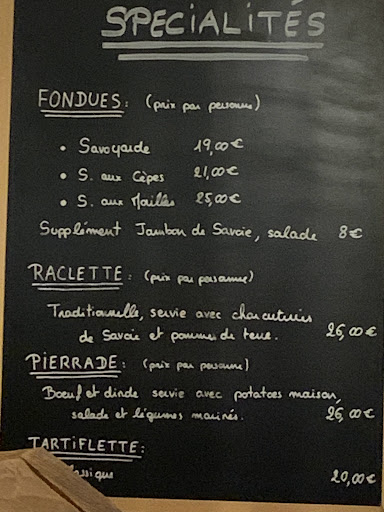 SPECIALITÉS
FONDUES: (prix par personne)
• Savoyarde 19,00€
• S. aux Cèpes 21,00€
• S. aux Morilles 25,00€
Supplément Jambon de Savoie, salade 8€
RACLETTE: (prix par personne)
Traditionnelle, servie avec charcuteries
de Savoie et pommes de terre. 26,00€
PIERRADE: (prix par personne)
Boeuf et dinde servie avec potatoes maison,
salade et légumes marinés. 26,00€
TARTIFLETTE:
lassique 20,00€